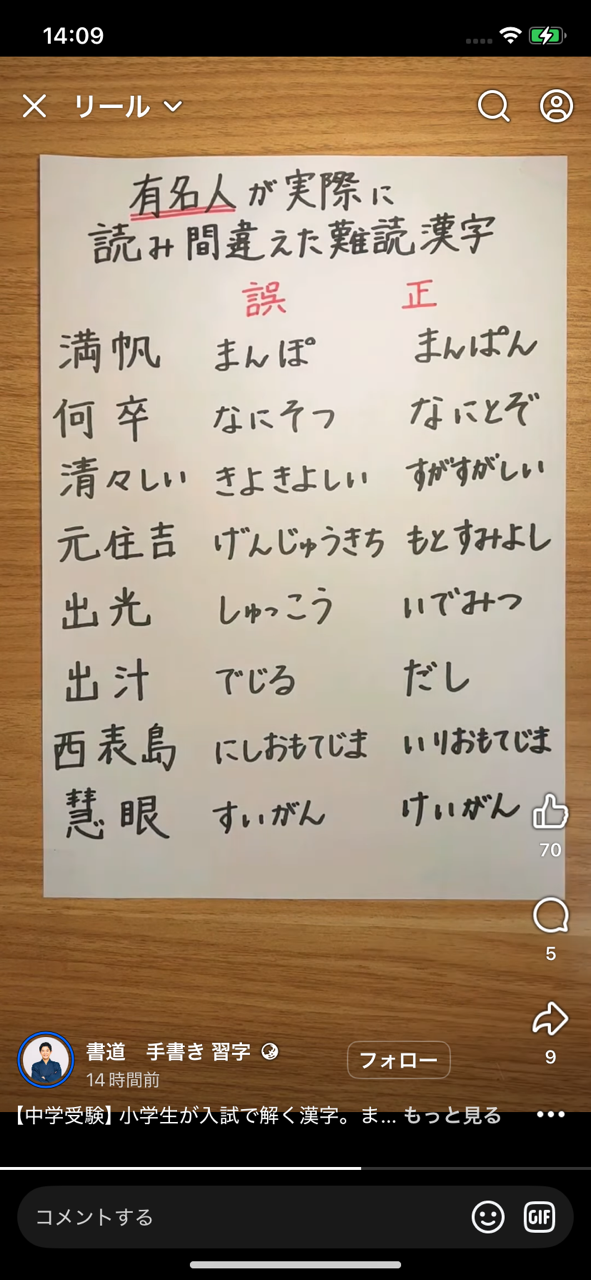 14:09
リール
有名人が実際に
読み間違えた難読漢字
誤 正
満帆 まんぽ まんぱん
何卒 なにそつ なにとぞ
清々しい きよきよしい すがすがしい
元住吉 げんじゅうきち もとすみよし
出光 しゅっこう いでみつ
出汁 でじる だし
西表島 にしおもてじま いりおもてじま
慧眼 すいがん けいがん
70
5
9
書道 手書き 習字
フォロー
14時間前
【中学受験】小学生が入試で解く漢字。ま... もっと見る
コメントする
GIF